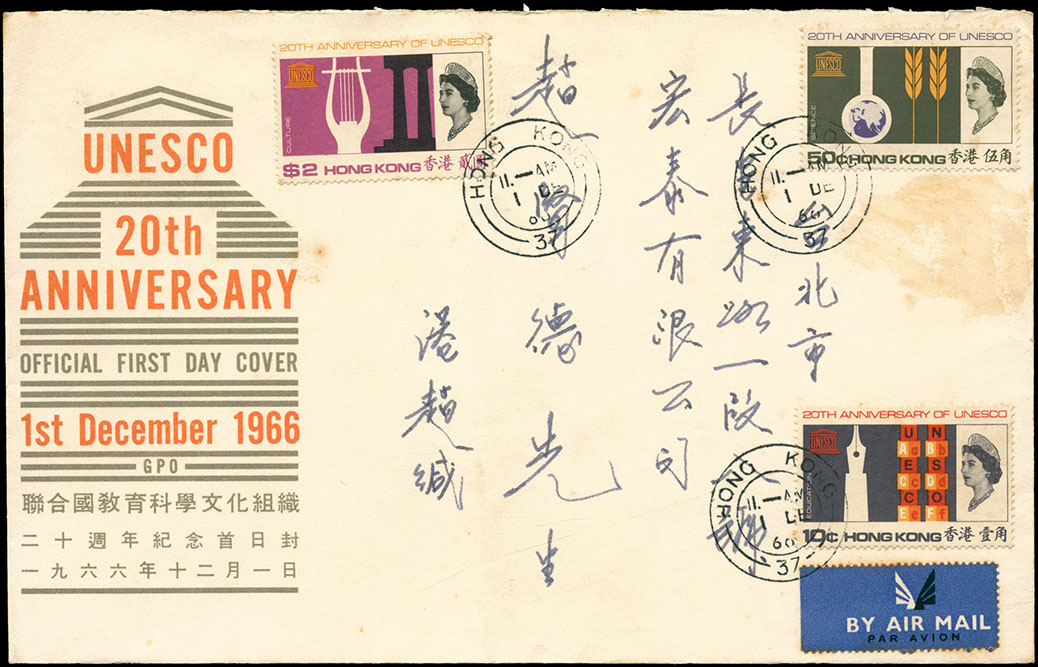 UNESCO
20th
ANNIVERSARY
OFFICIAL FIRST DAY COVER
1st December 1966
GPO
聯合國教育科學文化組織
二十週年紀念首日封
一九六六年十二月一日
20TH ANNIVERSARY OF UNESCO
UNESCO
CULTURE
$2 HONG KONG 香港 貳圓
HONG KONG
11.—AM
1 DE
66
37
20TH ANNIVERSARY OF UNESCO
UNESCO
SCIENCE
50¢ HONG KONG 香港 伍角
HONG KONG
11.—AM
1 DE
66
37
北市
長東路一段
號
宏泰有限公司
趙
德先生
港趙緘
20TH ANNIVERSARY OF UNESCO
UNESCO
EDUCATION
U N
Aa Bb
E S
Cc Dd
C O
Ee Ff
10¢ HONG KONG 香港 壹角
HONG KONG
11.—AM
1 DE
66
37
BY AIR MAIL
PAR AVION